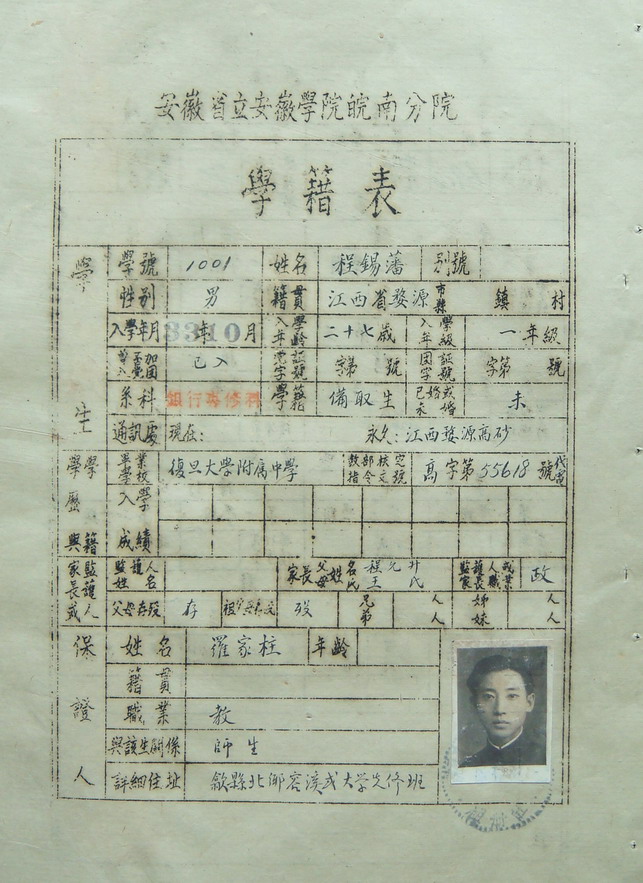 安徽省立安徽學院皖南分院
學籍表
學生
學號 1001 姓名 程錫藩 別號
性別 男 籍貫 江西省婺源 市縣 鎮 村
入學年月 33年10月 入學年齡 二十七歲 入學年級 一年級
曾否參加入黨團 已入 黨字證號 字第 號 團字證號 字第 號
系科 銀行專修科 學籍 備取生 已未婚或婚 未
通訊處 現在: 永久: 江西婺源高砂
學歷與學籍 畢業學校 復旦大學附属中學 教部核定指令文號 高字第55618號代電
入學成績
家長或監護人 監護人姓名 家長父母姓名氏 程 升 王氏 監護人或家長職業 政
父母存歿 存 祖父母存歿 歿 兄弟 人 人 姊妹 人 人
保證人
姓名 羅家柱 年齡
籍貫
職業 教
與該生關係 師生
詳細住址 歙縣北鄉容溪或大學先修班